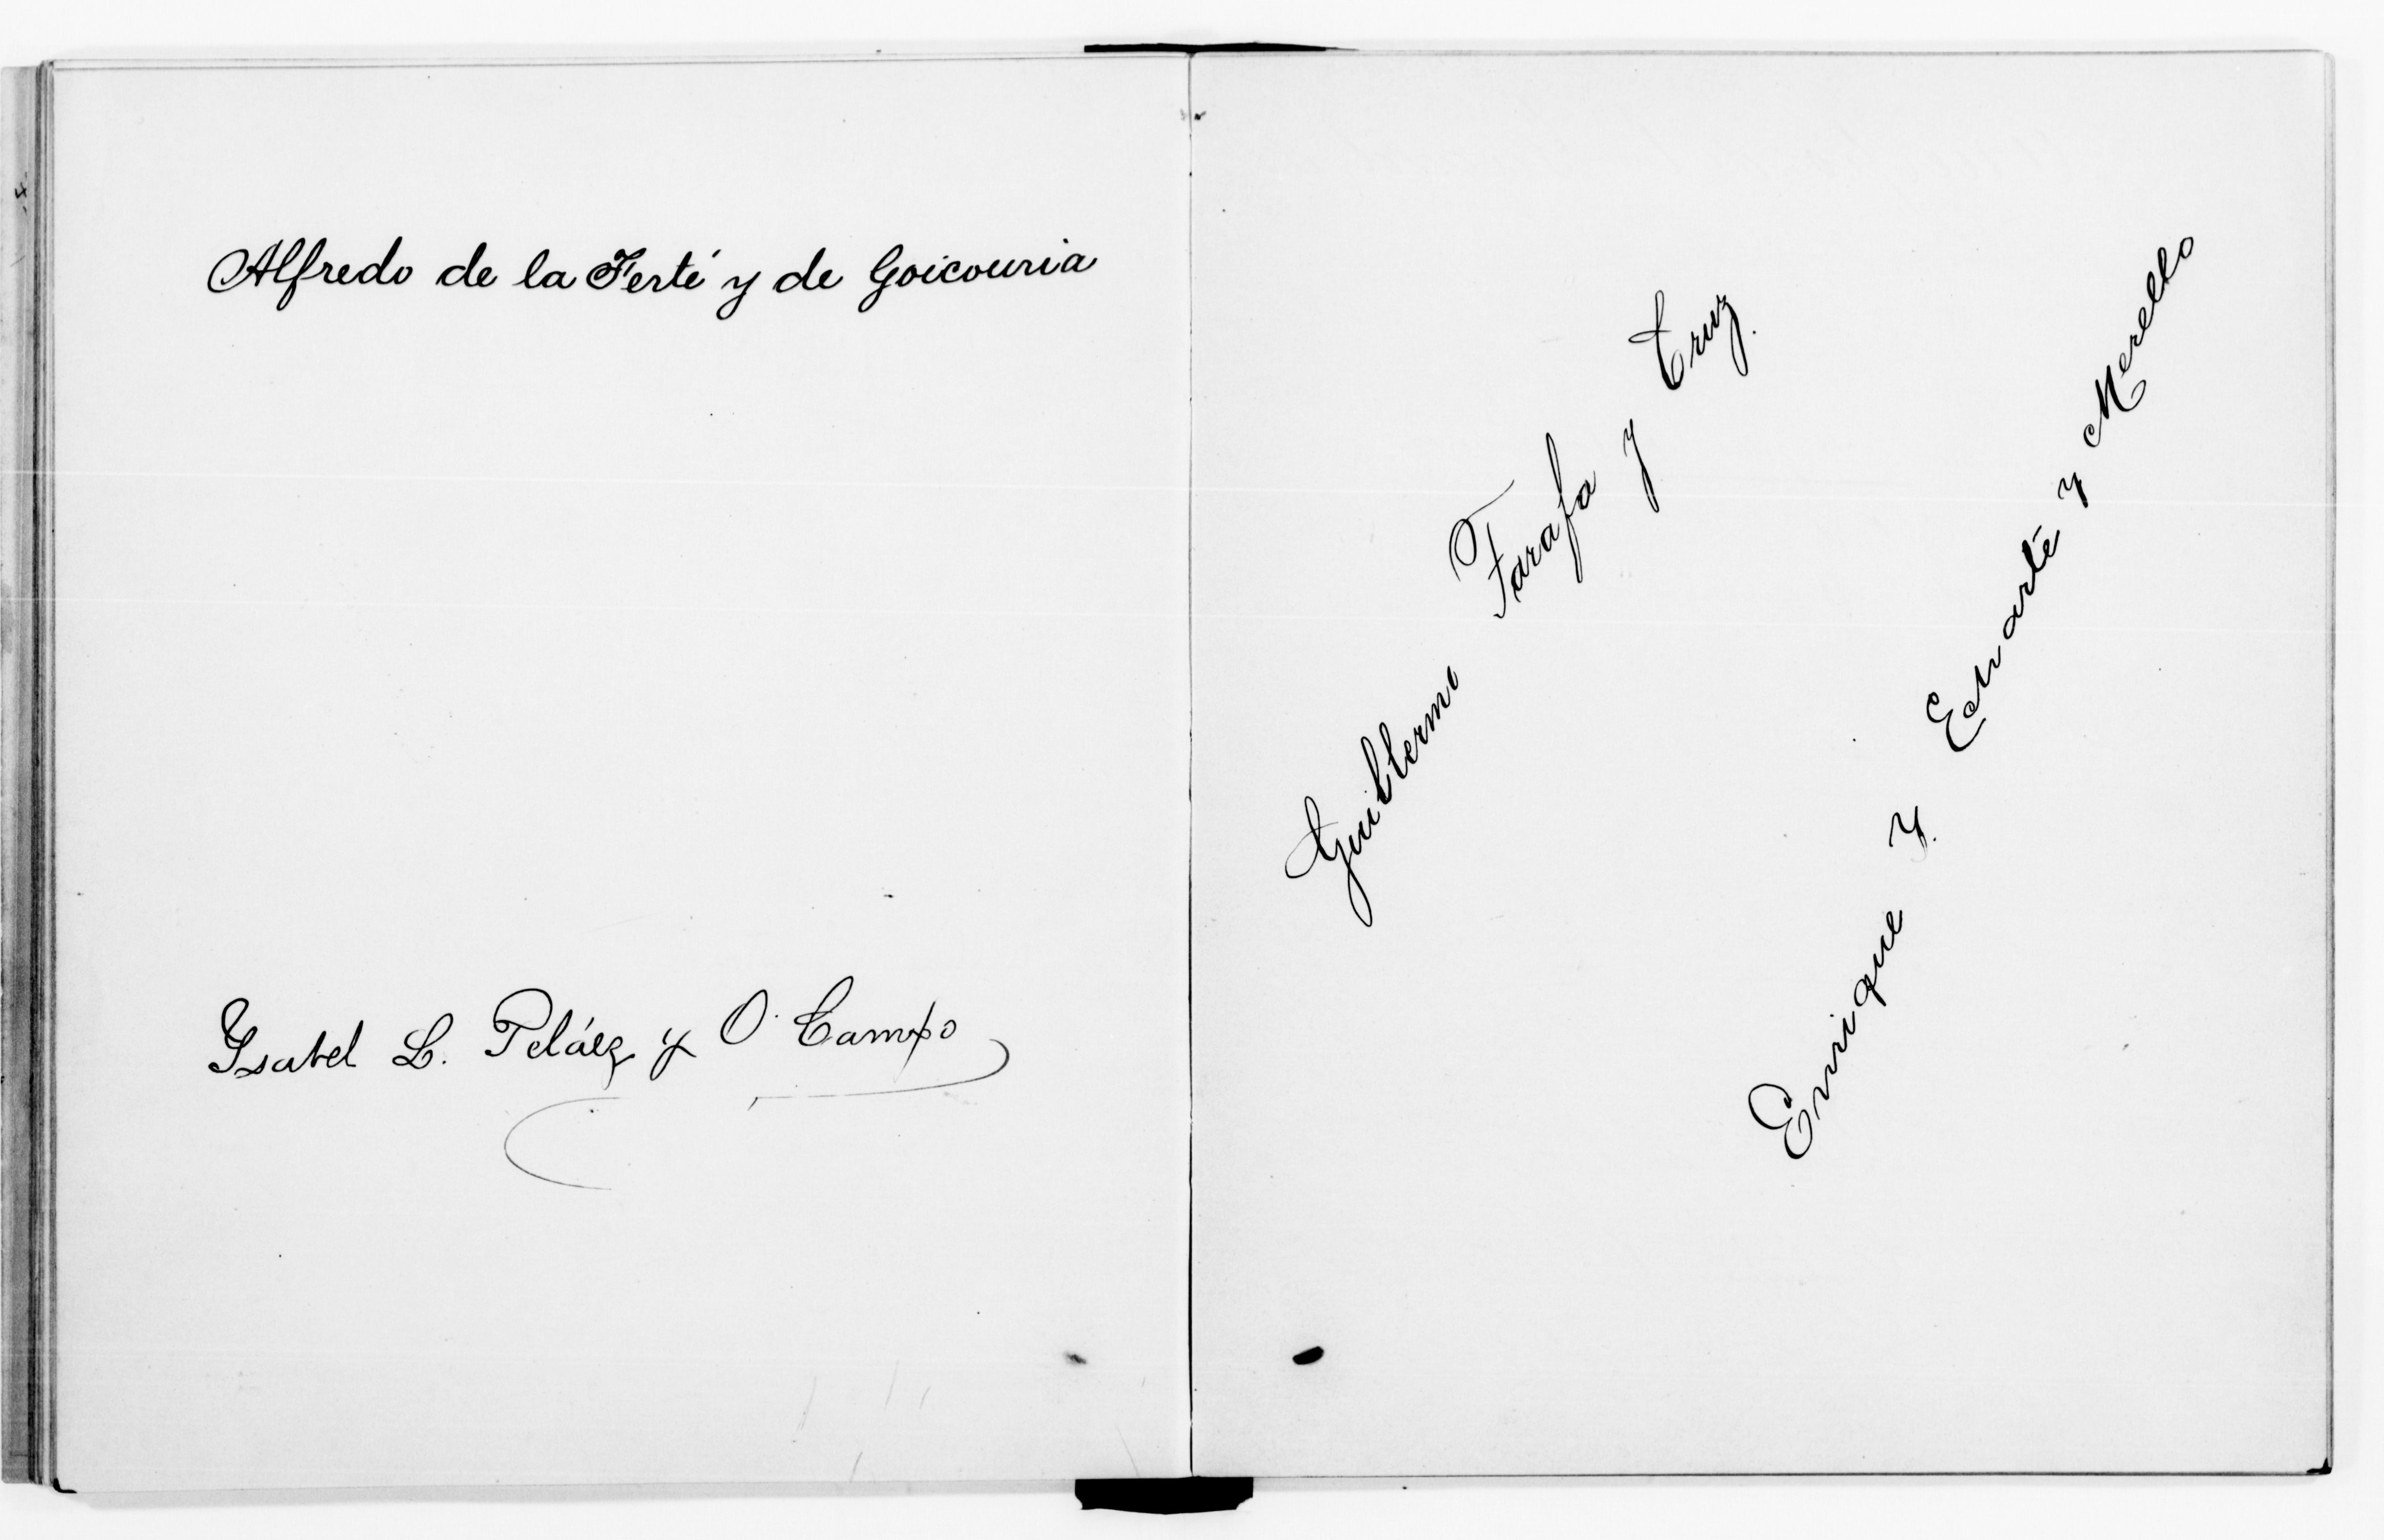 Alfredo de la Ferté y de Goicouria
Ysabel L. Peláez y O'Campo
Guillermo Tarafa y Cruz.
Enrique Y. Ecnarte y Merello